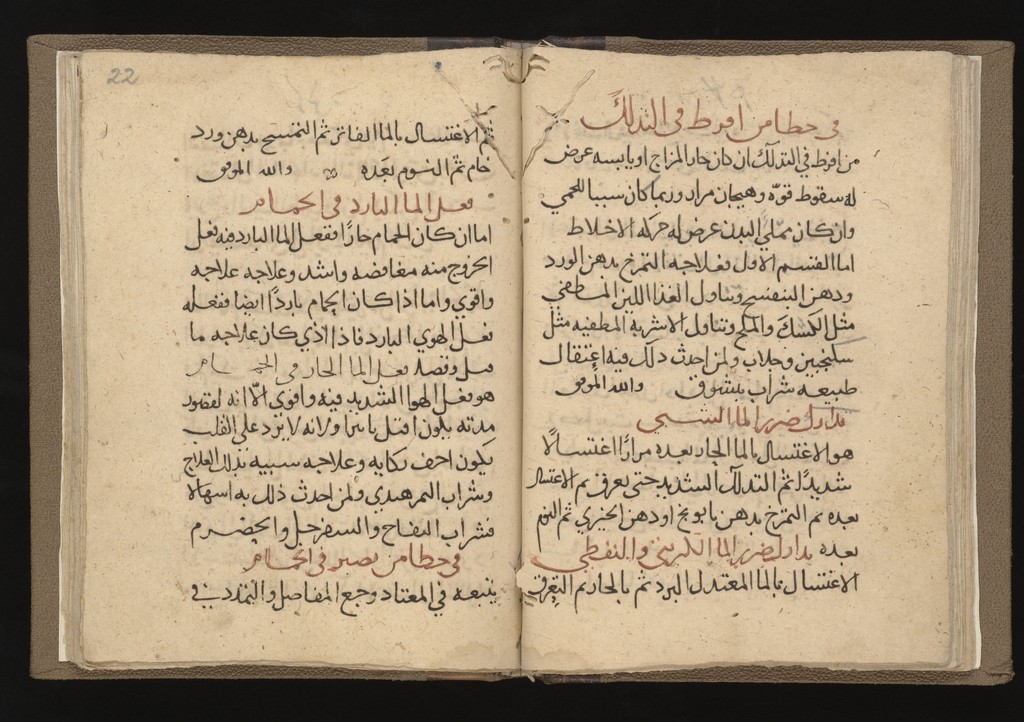 في خطا من افرط في التدلك
من افرط في التدلك ان كان حار المزاج او يابسه عرض
له سقوط قوه وهيجان مرار وربما كان سببا للحمي
وان كان ممتلي البدن عرض له حركه الاخلاط
اما القسم الاول فعلاجه التمرخ بدهن الورد
ودهن البنفسج وتناول الغذا اللين المطفي
مثل الكشك والمج وتناول الاشربة المطفيه مثل
سكنجبين وجلاب ولمن احدث ذلك فيه اعتقال
طبيعه شراب والله الموفق
تدارك ضرر الما الشبي
هو الاغتسال بالما الحار بعده مرارًا اغتسالًا
شديدًا ثم التدلك الشديد حتى يعرق ثم الاغتسال
بعده ثم التمرخ بدهن بابونج او دهن الخيري ثم النوم
بعده تدارك ضرر الما الكبريتي والنفطي
الاغتسال بالما المعتدل البرد ثم بالحار ثم التعرق
22
ثم الاغتسال بالما الفاتر ثم التمسح بدهن ورد
خام ثم النوم بعده والله الموفق
فعل الما البارد في الحمام
اما ان كان الحمام حارًا ففعل الما البارد فيه فعل
الخروج منه مغافصه واشد وعلاجه علاجه
واقوي واما اذا كان الحمام باردًا ايضا ففعله
فعل الهوي البارد فاذا الذي كان علاجه ما
فعل الما الحار في الحمام
هو فعل الهوا الشديد فيه واقوي الا انه لقصور
مدته يكون اقل تاثيرا ولانه لا يرد على القلب
يكون اخف نكايه وعلاجه سببيه بذلك العلاج
وشراب التمر هندي ولمن احدث ذلك به اسهالا
فشراب التفاح والسفرجل والحصرم
في خطا من يصير في الحمام
يتبعه في المعتاد وجع المفاصل والتمدد في